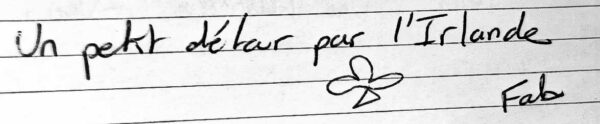 Un petit détour par l'Irlande
Fab